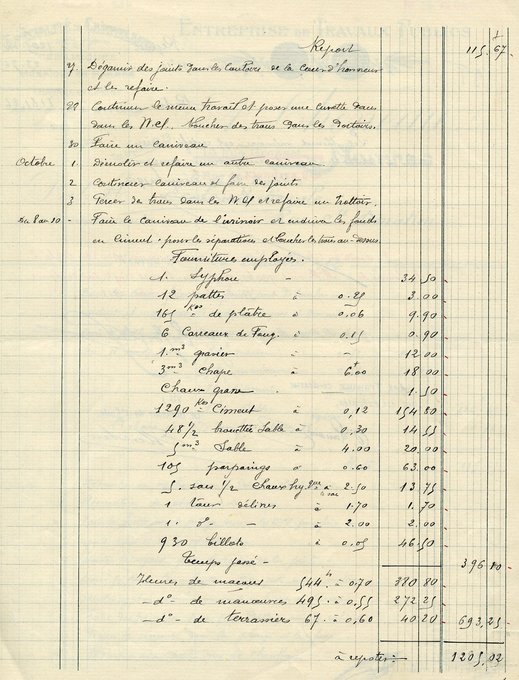 Report 115,67
27. Dégarnir des joints dans les                de la Cour d'honneur
et les refaire.
29 Continuer le même travail et poser une cuvette dans
dans les W.Cl. Boucher des trous dans les Dortoirs.
30 Faire un caniveau
Octobre 1. Démolir et refaire un autre caniveau
2 Continuer caniveau et faire des joints
3 Percer de trous dans les W.Cl et refaire un trottoir.
du 8 au 10 - Faire le caniveau de l'urinoir et enduire les fonds
en ciment. poser les séparations et boucher les trous au-dessous
Fournitures employées.
1. Syphon — 34,50
12 pattes à 0.25 3,00
165 Kos de plâtre à 0,06 9,90
6 Carreaux de Foug. à 0,15 0,90
1. m3 gravier — 12,00
3 m3 Chape à 6,00 18,00
Chaux grasse 1,50
1290 Kos Ciment à 0,12 154,80
48 1/2 brouettes Sable à 0,30 14,55
5 m3 Sable à 4,00 20,00
105 parpaings à 0.60 63,00
5. sacs 1/2 Chaux hyd. à 2,50 13,75
1 à 1,70 1,70
1. do — à 2,00 2,00
930 billots à 0,05 46,50
Temps passé — 396,10
Heures de maçons 544h à 0,70 380,80
—do— de manœuvres 495. à 0,55 272,25
—do— de terrassiers 67. à 0,60 40,20 693,25
à reporter: 1205,02